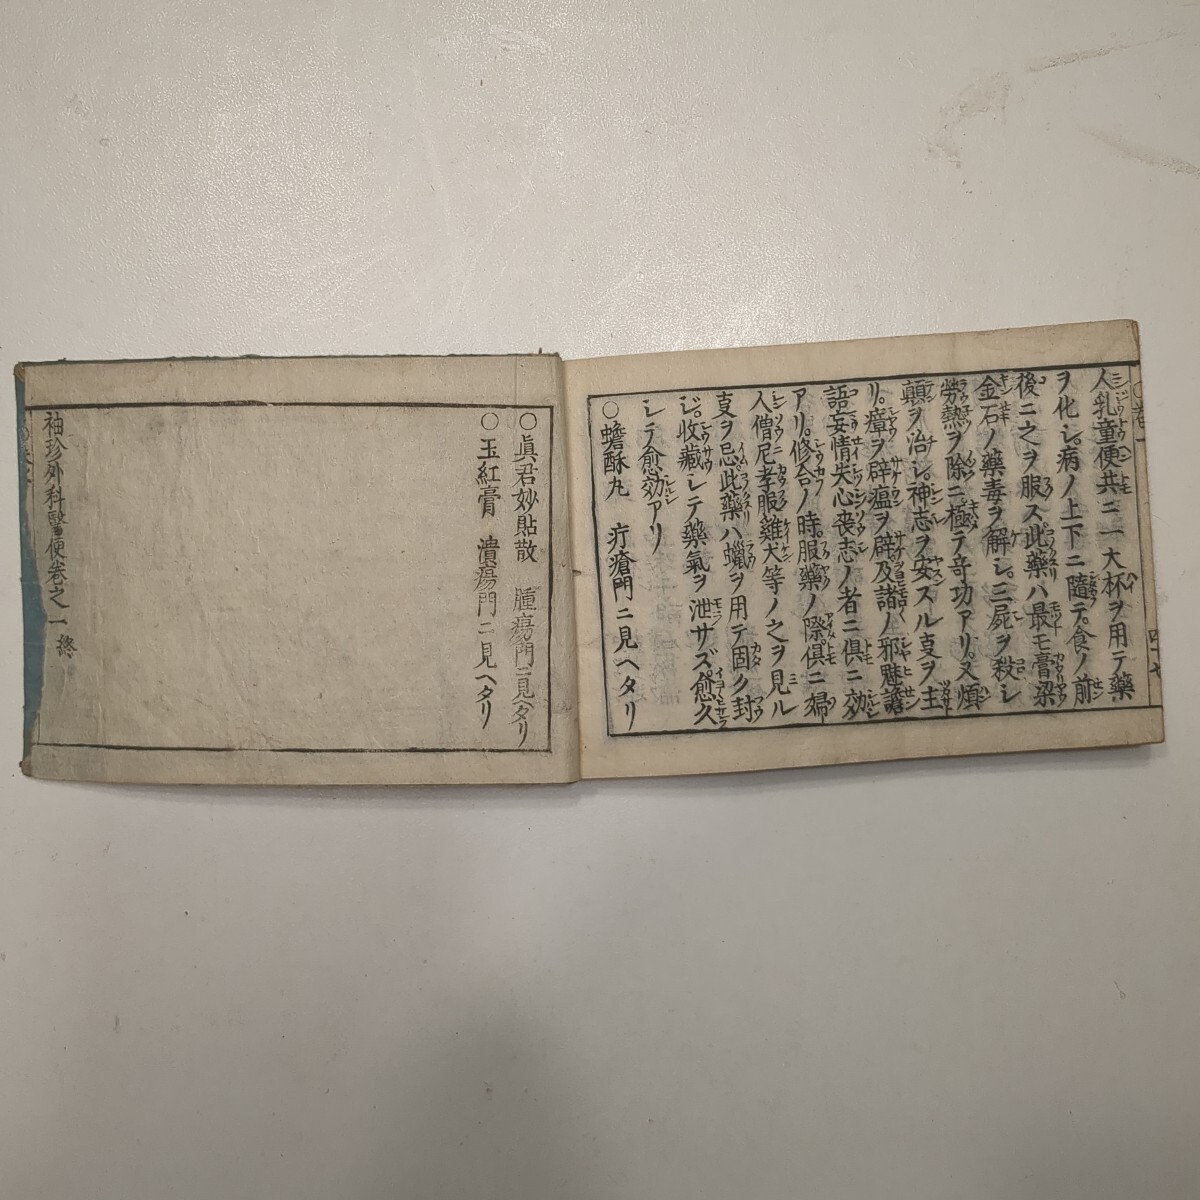 人乳童便共ニ一大杯ヲ用テ藥
ヲ化シ。病ノ上下ニ隨テ。食ノ前
後ニ之ヲ服ス此藥ハ最モ膏梁
金石ノ藥毒ヲ解シ。三屍ヲ殺シ
勞熱ヲ除ニ極テ竒功アリ。又煩
顛ヲ治シ。神志ヲ安スル叓ヲ主
リ。瘴ヲ辟瘟ヲ辟及諸ノ邪魅譫
語妄情失心喪志ノ者ニ俱ニ効
アリ。修合ノ時。服藥ノ際。俱ニ婦
人僧尼孝服雞犬等ノ之ヲ見ル
叓ヲ忌此藥ハ蠟ヲ用テ固ク封
ジ。收藏シテ藥氣ヲ泄サズ。愈久
シテ愈効アリ
○蟾酥丸 疔瘡門ニ見ヘタリ
○眞君妙貼散 腫瘍門ニ見ヘタリ
○玉紅膏 潰瘍門ニ見ヘタリ
袖珍外科醫便卷之一 終